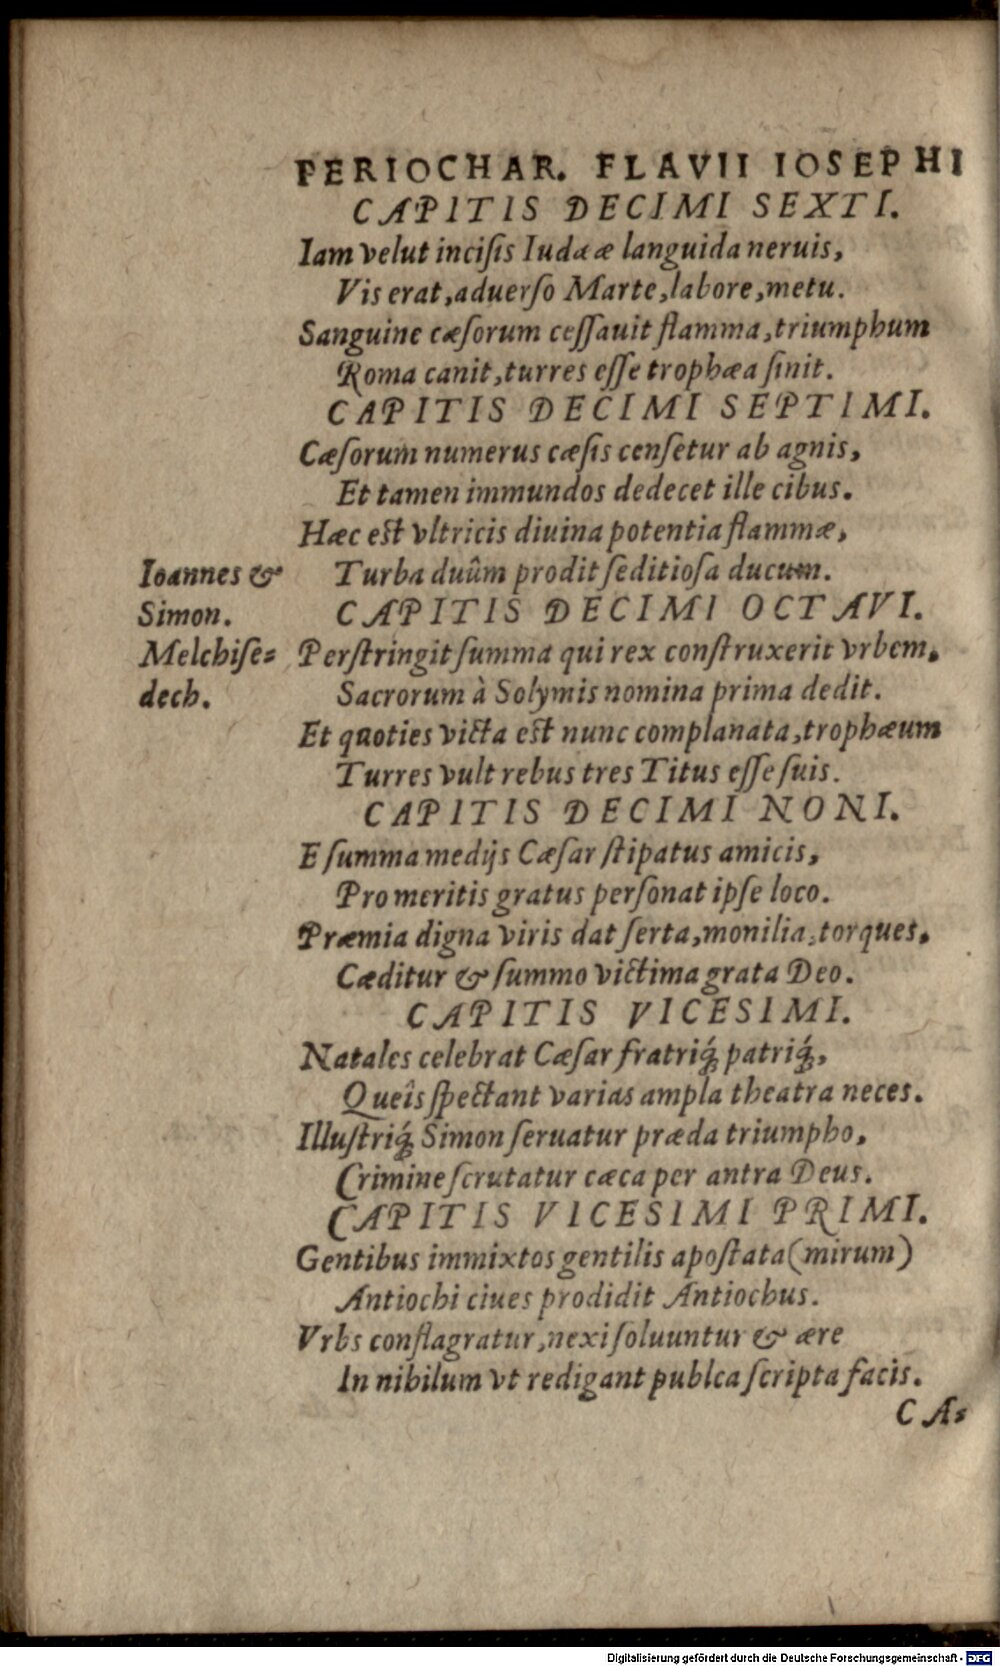 PERIOCHAR. FLAVII IOSEPHI
CAPITIS DECIMI SEXTI.
Iam velut inciſis Iudææ languida neruis,
Vis erat, aduerſo Marte, labore, metu.
Sanguine cæſorum ceſſauit flamma, triumphum
Roma canit, turres eſſe trophæa ſinit.
CAPITIS DECIMI SEPTIMI.
Cæſorum numerus cæſis cenſetur ab agnis,
Et tamen immundos dedecet ille cibus.
Hæc est vltricis diuina potentia flammæ,
Ioannes &
Turba duûm prodit ſeditioſa ducum.
Simon.
CAPITIS DECIMI OCTAVI.
Melchiſe=
Perſtringit ſumma qui rex conſtruxerit vrbem,
dech.
Sacrorum à Solymis nomina prima dedit.
Et quoties victa est nunc complanata, trophæum
Turres vult rebus tres Titus eſſe ſuis.
CAPITIS DECIMI NONI.
E ſumma medijs Cæſar ſtipatus amicis,
Pro meritis gratus perſonat ipſe loco.
Præmia digna viris dat ſerta, monilia, torques,
Cæditur & ſummo victima grata Deo.
CAPITIS VICESIMI.
Natales celebrat Cæſar fratriq́; patriq́;,
Queîs ſpectant varias ampla theatra neces.
Illuſtriq́; Simon ſeruatur præda triumpho,
Crimine ſcrutatur cæca per antra Deus.
CAPITIS VICESIMI PRIMI.
Gentibus immixtos gentilis apoſtata (mirum)
Antiochi ciues prodidit Antiochus.
Vrbs conflagratur, nexi ſoluuntur & ære
In nihilum vt redigant publca ſcripta facis.
CA=
Digitalisierung gefördert durch die Deutsche Forschungsgemeinschaft - DFG